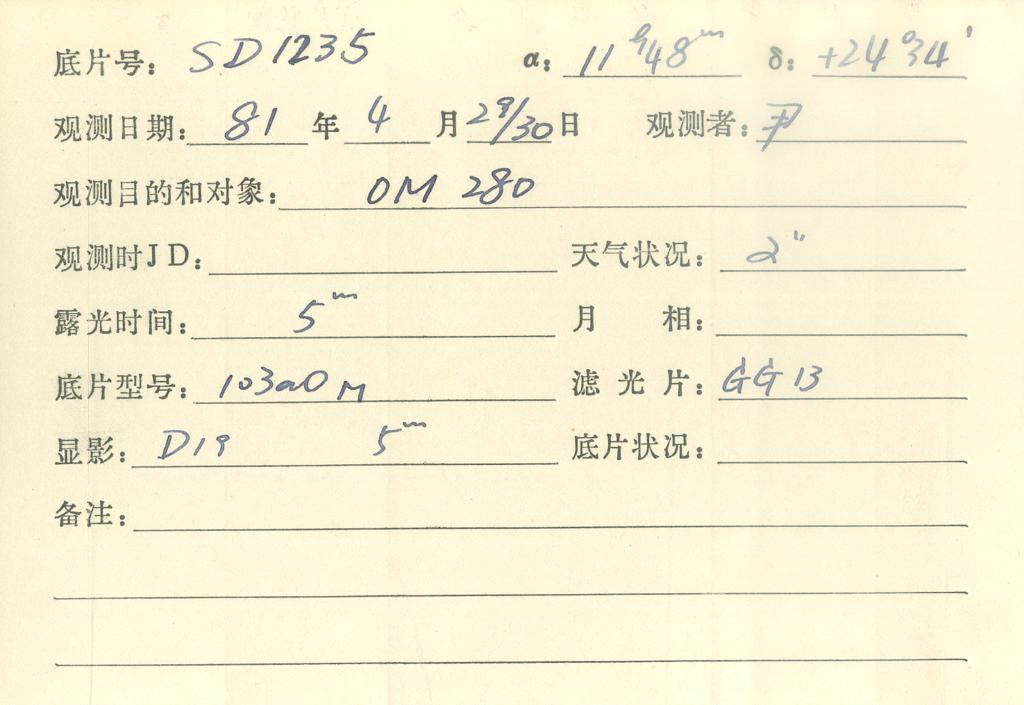 底片号: SD1235 α: 11ʰ48ᵐ δ: +24°34'
观测日期: 81 年 4 月 29/30 日 观测者: 尹
观测目的和对象: OM 280
观测时JD: 天气状况: 2"
露光时间: 5ᵐ 月 相:
底片型号: 103aO M 滤光片: GG13
显影: D19 5ᵐ 底片状况:
备注: